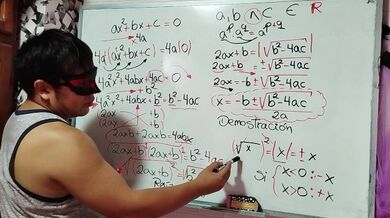 ax²+bx+c=0
4a
4a(ax²+bx+c)=4a(0)
4a²x²+4abx+4ac=0
4a²x²+4abx+b²=b²-4ac
2ax
2ax
2axb+2axb=4abx
(2ax+b)(2ax+b)=b²-4ac
√(2ax+b)²=√b²
a,b ∧ C ∈ R
aᵖa^q=a^(p+q)
2ax+b=|√b²-4ac|
2ax+b=±√b²-4ac
2ax=-b±√b²-4ac
x=-b±√b²-4ac
2a
Demostración
(√x)²=|x|=±x
Si {x<0:-x
x>0:+x